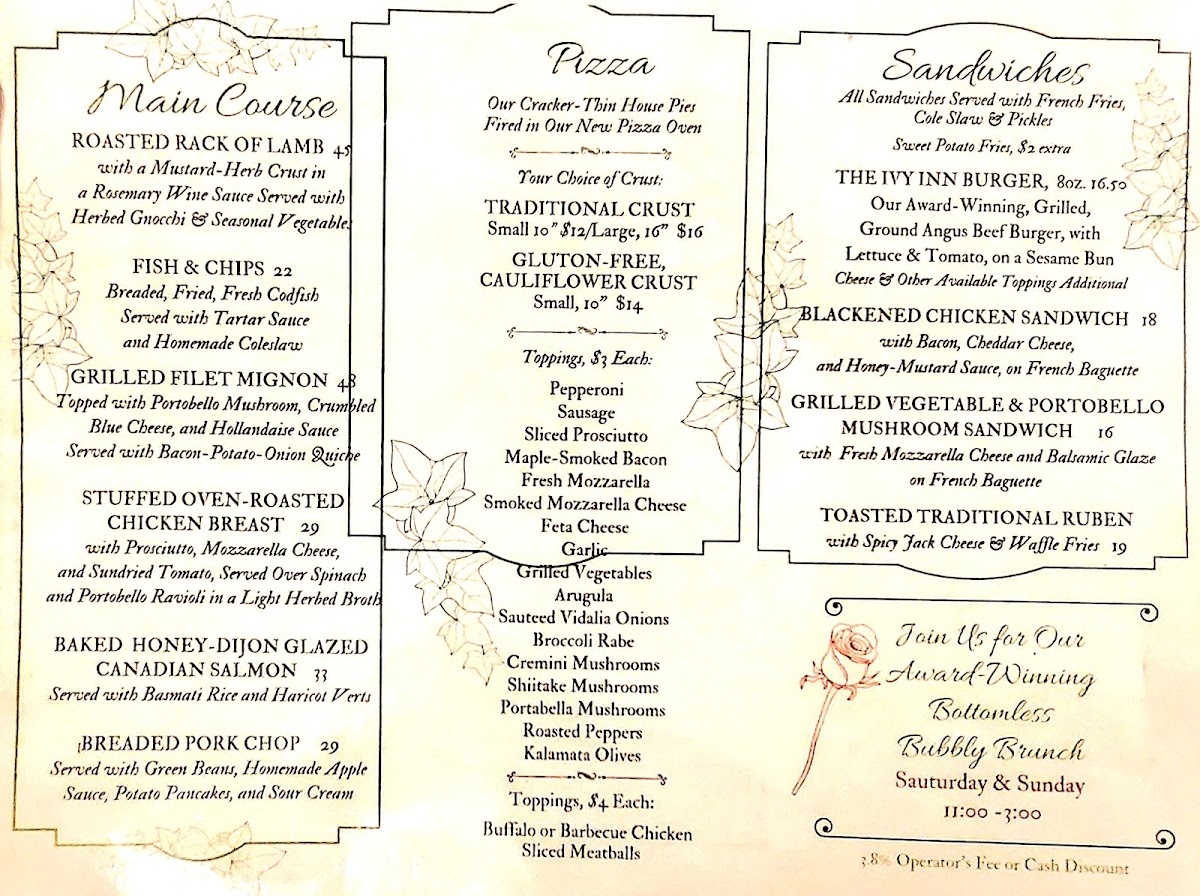 Main Course
ROASTED RACK OF LAMB 45
with a Mustard-Herb Crust in
a Rosemary Wine Sauce Served with
Herbed Gnocchi & Seasonal Vegetables
FISH & CHIPS 22
Breaded, Fried, Fresh Codfish
Served with Tartar Sauce
and Homemade Coleslaw
GRILLED FILET MIGNON 48
Topped with Portobello Mushroom, Crumbled
Blue Cheese, and Hollandaise Sauce
Served with Bacon-Potato-Onion Quiche
STUFFED OVEN-ROASTED
CHICKEN BREAST 29
with Prosciutto, Mozzarella Cheese,
and Sundried Tomato, Served Over Spinach
and Portobello Ravioli in a Light Herbed Broth
BAKED HONEY-DIJON GLAZED
CANADIAN SALMON 33
Served with Basmati Rice and Haricot Verts
BREADED PORK CHOP 29
Served with Green Beans, Homemade Apple
Sauce, Potato Pancakes, and Sour Cream
Pizza
Our Cracker-Thin House Pies
Fired in Our New Pizza Oven
Your Choice of Crust:
TRADITIONAL CRUST
Small 10" $12/Large, 16" $16
GLUTON-FREE,
CAULIFLOWER CRUST
Small, 10" $14
Toppings, $3 Each:
Pepperoni
Sausage
Sliced Prosciutto
Maple-Smoked Bacon
Fresh Mozzarella
Smoked Mozzarella Cheese
Feta Cheese
Garlic
Grilled Vegetables
Arugula
Sauteed Vidalia Onions
Broccoli Rabe
Cremini Mushrooms
Shiitake Mushrooms
Portabella Mushrooms
Roasted Peppers
Kalamata Olives
Toppings, $4 Each:
Buffalo or Barbecue Chicken
Sliced Meatballs
Sandwiches
All Sandwiches Served with French Fries,
Cole Slaw & Pickles
Sweet Potato Fries, $2 extra
THE IVY INN BURGER, 8oz. 16.50
Our Award-Winning, Grilled,
Ground Angus Beef Burger, with
Lettuce & Tomato, on a Sesame Bun
Cheese & Other Available Toppings Additional
BLACKENED CHICKEN SANDWICH 18
with Bacon, Cheddar Cheese,
and Honey-Mustard Sauce, on French Baguette
GRILLED VEGETABLE & PORTOBELLO
MUSHROOM SANDWICH 16
with Fresh Mozzarella Cheese and Balsamic Glaze
on French Baguette
TOASTED TRADITIONAL RUBEN
with Spicy Jack Cheese & Waffle Fries 19
Join Us for Our
Award-Winning
Bottomless
Bubbly Brunch
Sauturday & Sunday
11:00 -3:00
3.8% Operator's Fee or Cash Discount